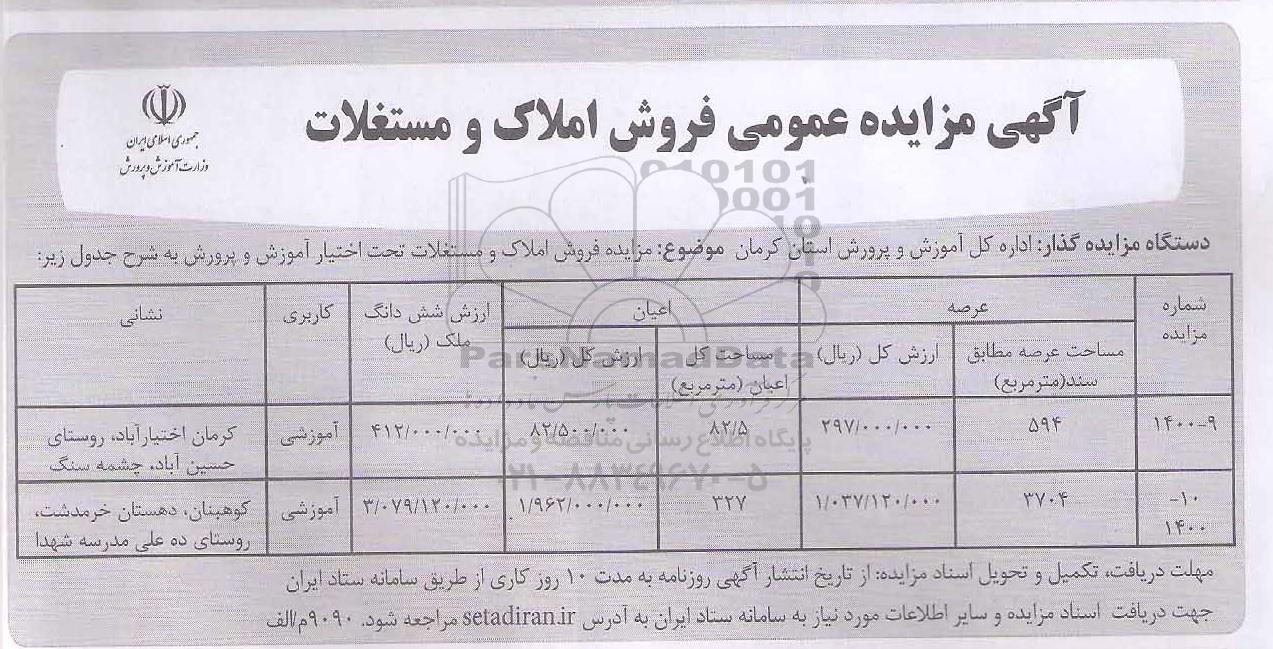 آگهی مزایده عمومی فروش املاک و مستغلات
جمهوری اسلامی ایران
وزارت آموزش و پرورش
دستگاه مزایده گذار: اداره کل آموزش و پرورش استان کرمان موضوع: مزایده فروش املاک و مستغلات تحت اختیار آموزش و پرورش به شرح جدول زیر:
شماره مزایده
عرصه
اعیان
ارزش شش دانگ ملک (ریال)
کاربری
نشانی
مساحت عرصه مطابق سند(مترمربع)
ارزش کل (ریال)
مساحت کل اعیان (مترمربع)
ارزش کل (ریال)
۱۴۰۰-۹
۵۹۴
۲۹۷/۰۰۰/۰۰۰
۸۲/۵
۸۲/۵۰۰/۰۰۰
۴۱۲/۰۰۰/۰۰۰
آموزشی
کرمان اختیارآباد، روستای
حسین آباد، چشمه سنگ
۱۰-
۱۴۰۰
۳۷۰۴
۱/۰۳۷/۱۲۰/۰۰۰
۳۲۷
۱/۹۶۲/۰۰۰/۰۰۰
۳/۰۷۹/۱۲۰/۰۰۰
آموزشی
کوهبنان، دهستان خرمدشت،
روستای ده علی مدرسه شهدا
مهلت دریافت، تکمیل و تحویل اسناد مزایده: از تاریخ انتشار آگهی روزنامه به مدت ۱۰ روز کاری از طریق سامانه ستاد ایران
جهت دریافت اسناد مزایده و سایر اطلاعات مورد نیاز به سامانه ستاد ایران به آدرس setadiran.ir مراجعه شود. ۹۰۹۰م/الف
ParsNamadData
پایگاه اطلاع رسانی مناقصه و مزایده
۰۲۱-۸۸۳۴۹۶۷۰-۵